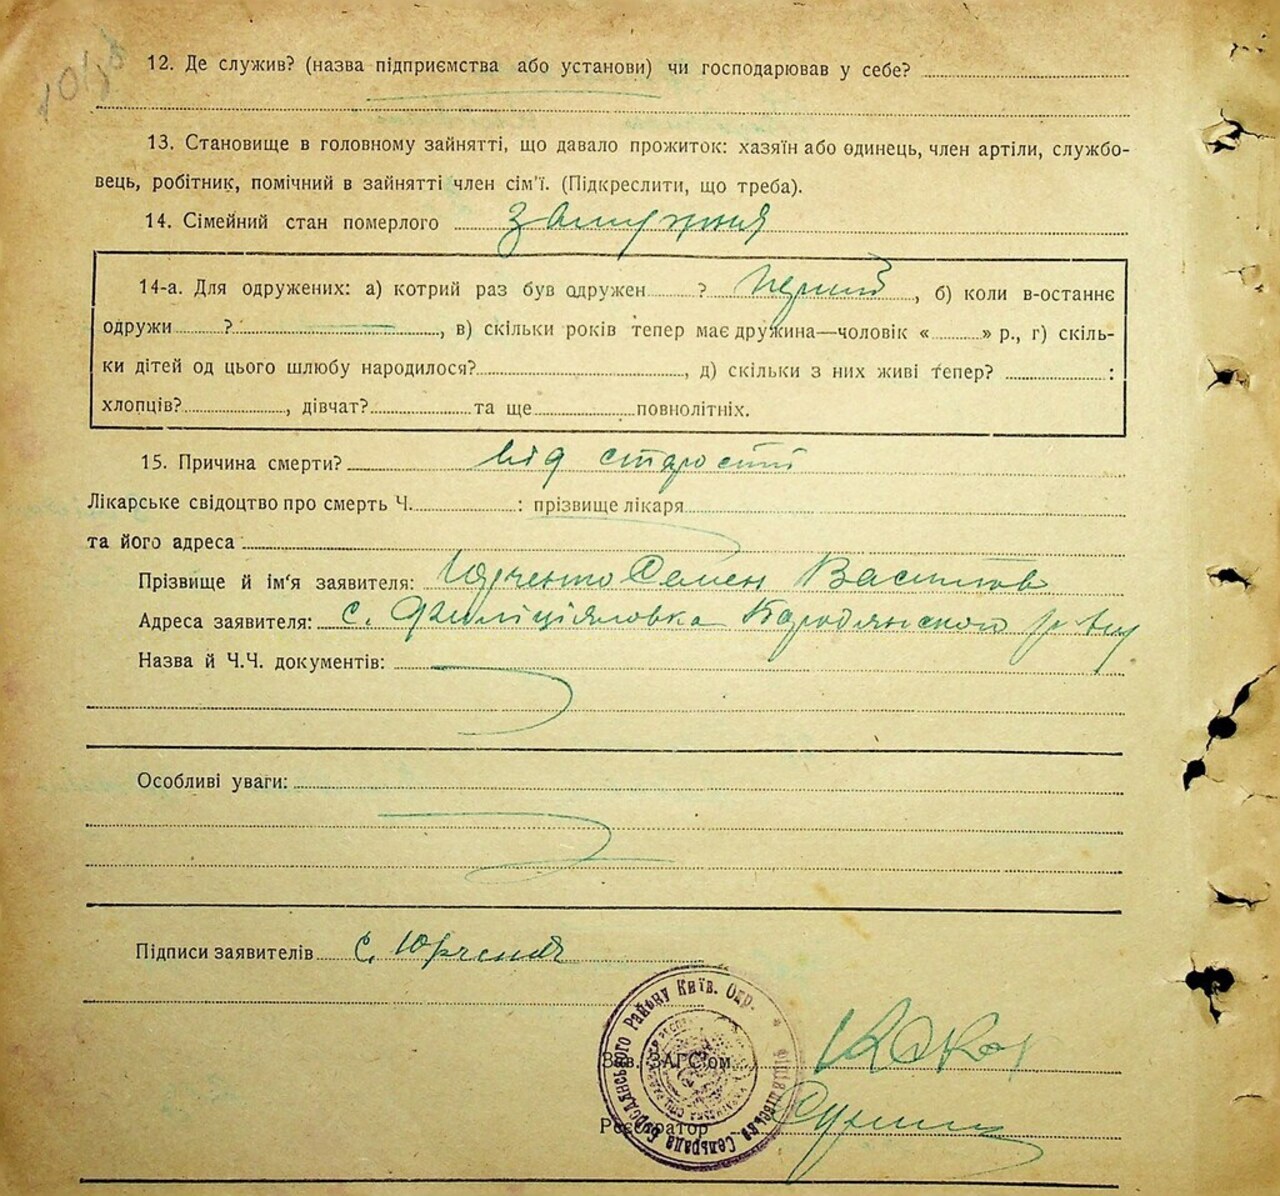 12. Де служив? (назва підприємства або установи) чи господарював у себе?
13. Становище в головному зайнятті, що давало прожиток: хазяїн або одинець, член артіли, службо-
вець, робітник, помічний в зайнятті член сім'ї. (Підкреслити, що треба).
14. Сімейний стан померлого замужня
14-а. Для одружених: а) котрий раз був одружен ? перший, б) коли в-останнє
одружи ? , в) скільки років тепер має дружина—чоловік « » р., г) скіль-
ки дітей од цього шлюбу народилося? , д) скільки з них живі тепер? :
хлопців? , дівчат? та ще повнолітніх.
15. Причина смерти? від старости
Лікарське свідоцтво про смерть Ч. : прізвище лікаря
та його адреса
Прізвище й ім'я заявителя: Юрченко Семен Васильов
Адреса заявителя: с. Бородянського р-ну
Назва й Ч.Ч. документів:
Особливі уваги:
Підписи заявителів С. Юрченко
Зав. ЗАГС'ом
Реєстратор
Сельрада Бородянського Району Київ. Окр.